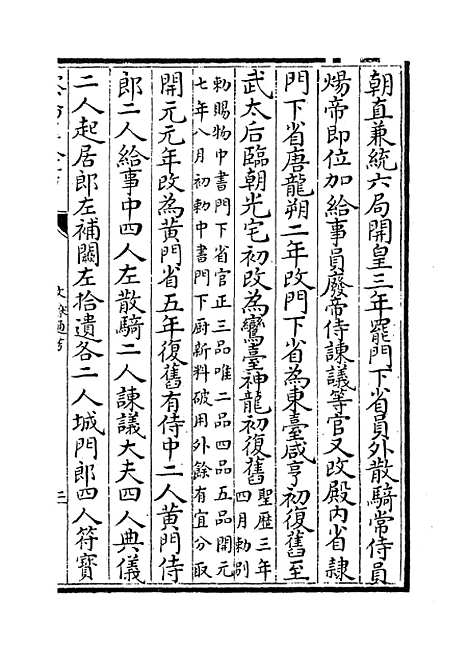 朝直兼統六局開皇三年罷門下省員外散騎常侍員
煬帝即位加給事員廢帝侍諫議等官又改殿内省隷
門下省唐龍朔二年改門下省為東臺咸亨初復舊至
武太后臨朝光宅初改為鸞臺神龍初復舊聖歷三年四月勅別
勅賜物中書門下省官正三品唯二品四品五品開元
七年八月初勅中書門下厨新料破用外餘有宜分取
開元元年改為黄門省五年復舊有侍中二人黄門侍
郎二人給事中四人左散騎二人諫議大夫四人典儀
二人起居郎左補闕左拾遺各二人城門郎四人符寳
文獻通考